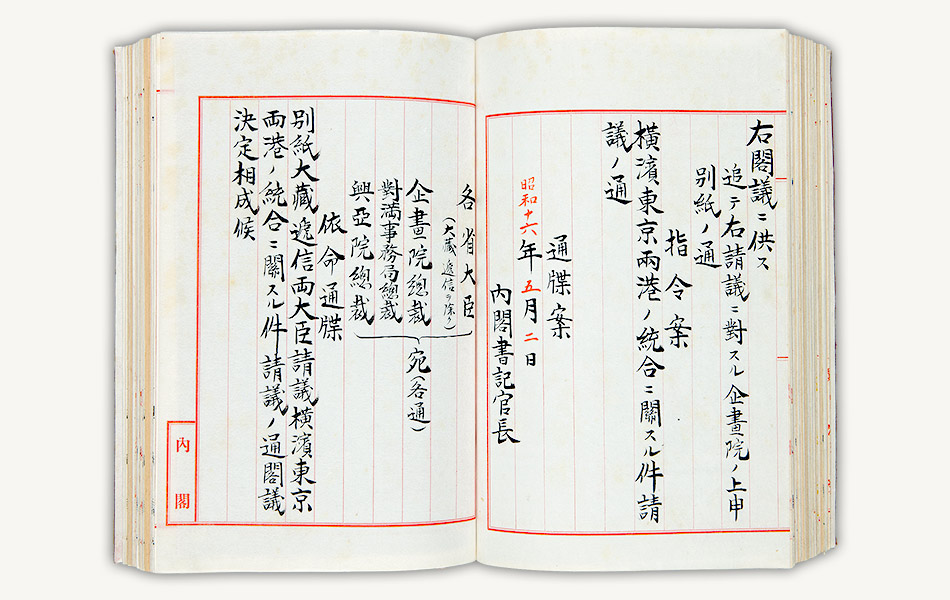 右閣議ニ供ス
追テ右請議ニ對スル企畫院ノ上申
別紙ノ通
指令案
橫濱東京兩港ノ統合ニ關スル件請
議ノ通
通牒案
昭和十六年五月二日
內閣書記官長
各省大臣
(大藏遞信ヲ除ク)
企畫院總裁
對滿事務局總裁
興亞院總裁
宛(各通)
依命通牒
別紙大藏遞信両大臣請議橫濱東京
両港ノ統合ニ關スル件請議ノ通閣議
決定相成候
內閣